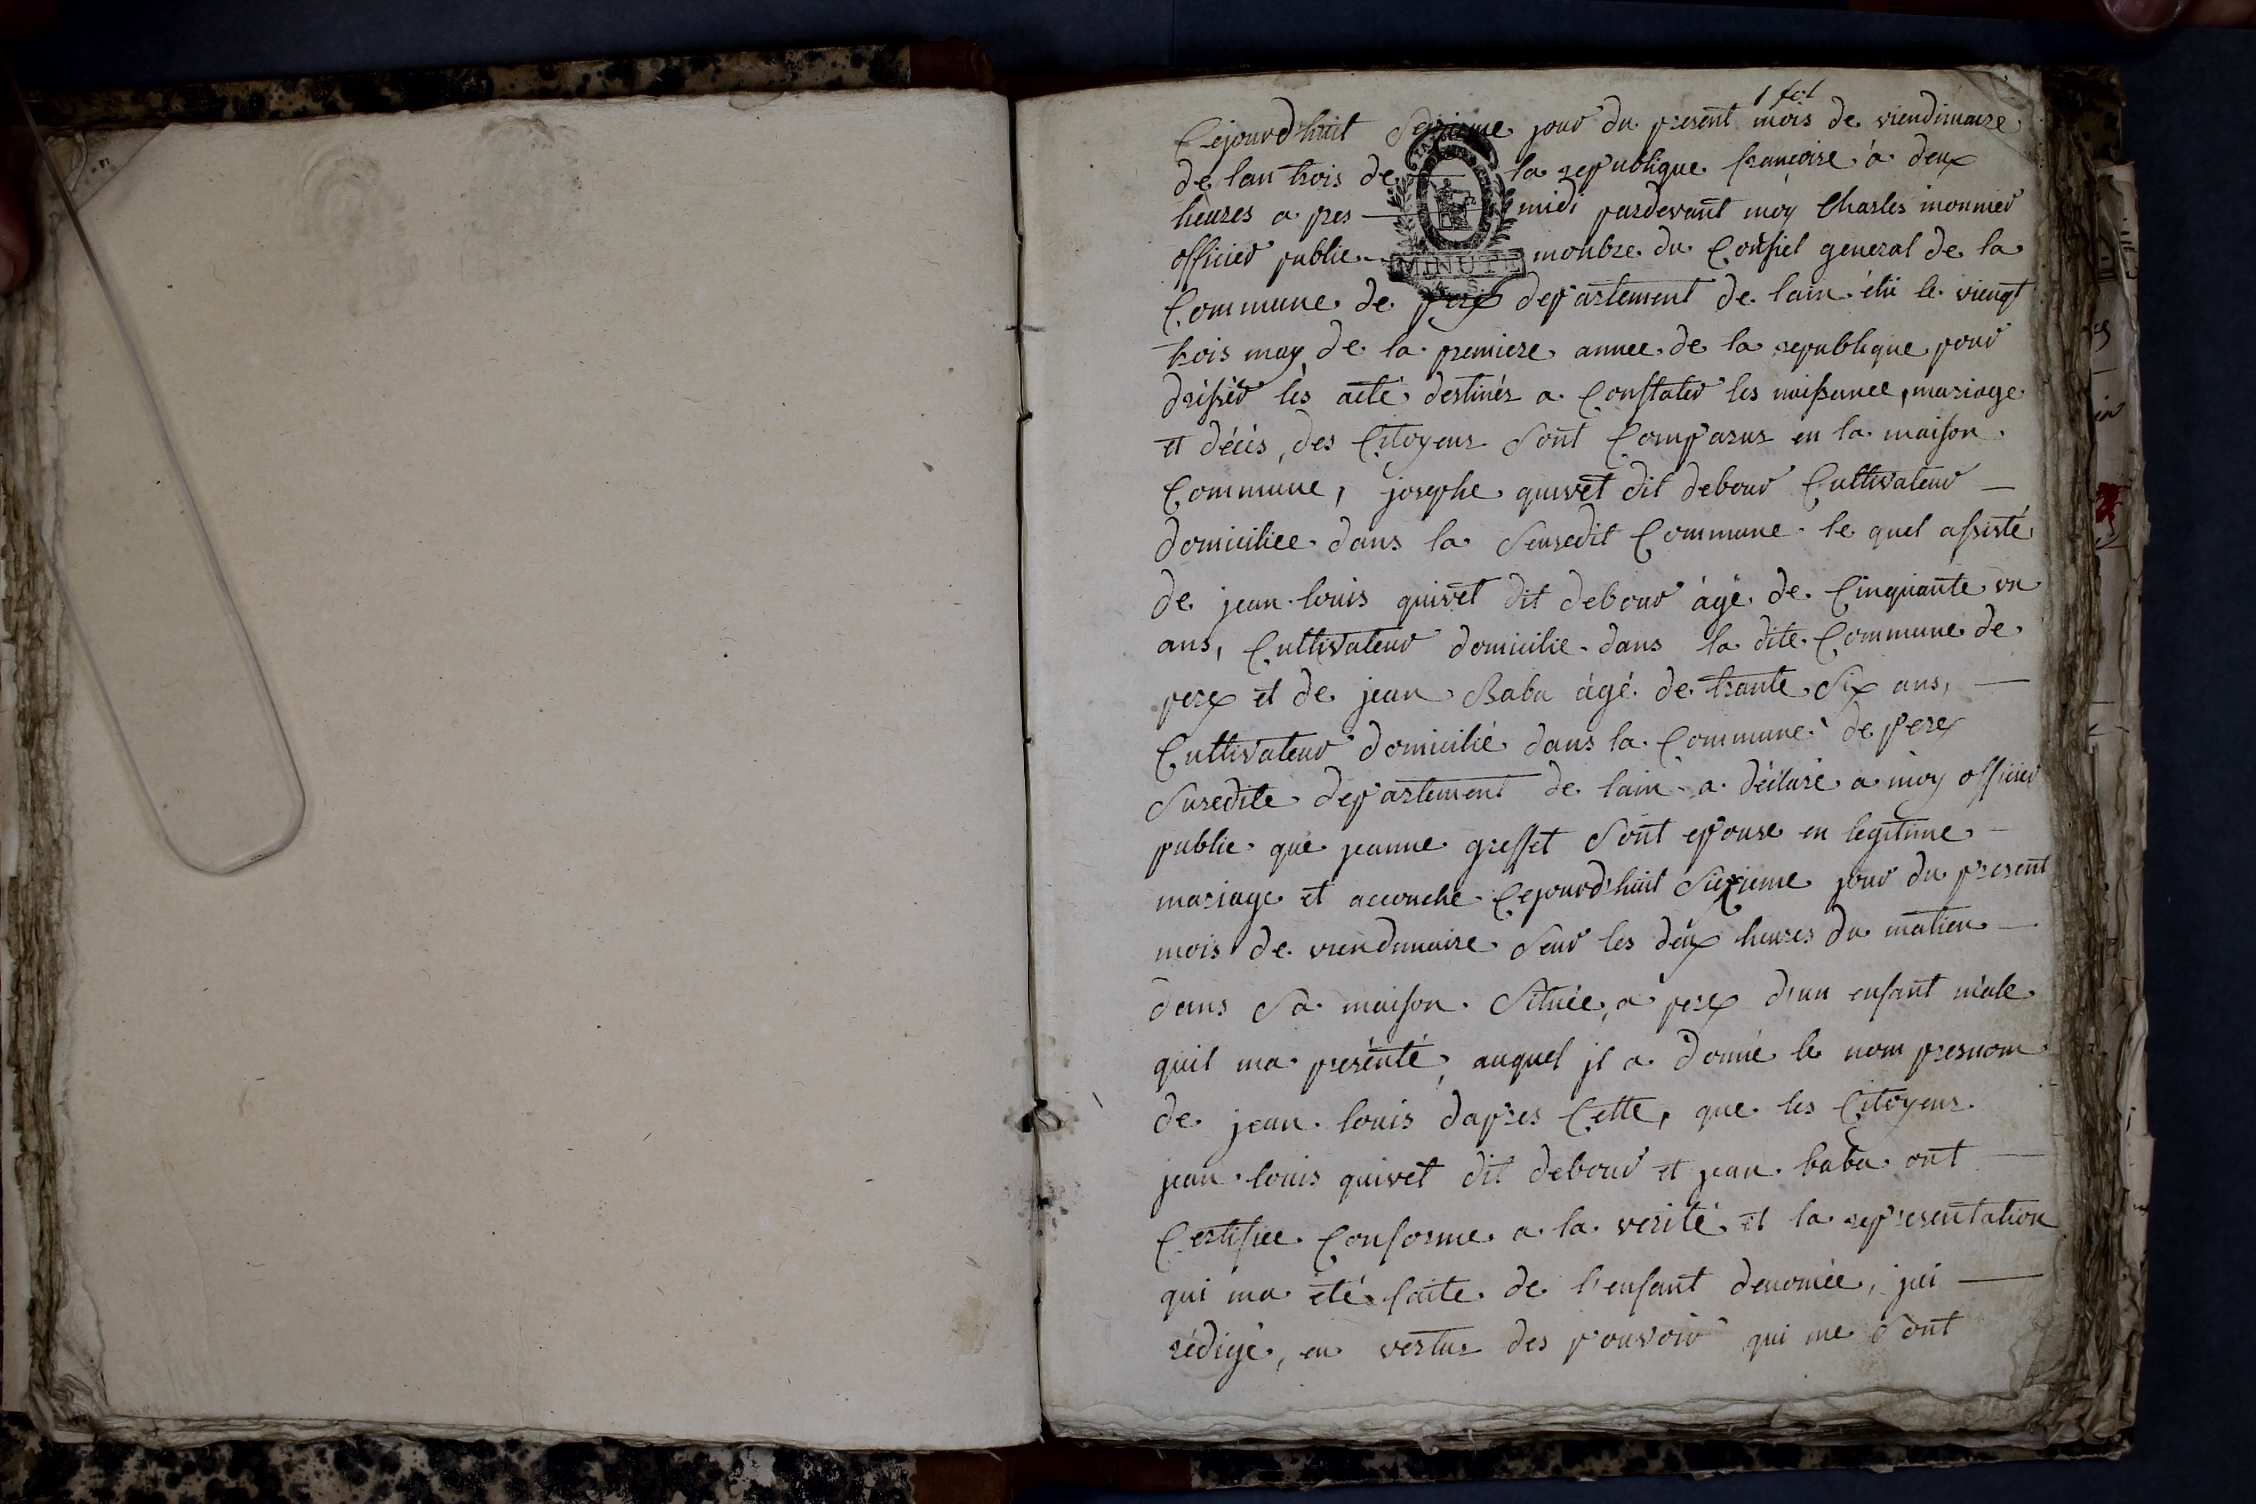 1 fol
Cejourd'huit Sixieme jour du present mois de viendimaire
de lan trois de la republique françoise a deux
heures a pres midi pardevant moy Charles monnier
officier public monbre du Consiel general de la
MINUTE
Commune de perex departement de lain élu le viengt
trois may de la premiere annee de la republique pour
drésser lès acté destinéz a Constater les naissance, mariage
et décès, des Citoyens Sont Comparus en la maison
Commune, josephe quivet dit debour Cultivateur
domiciliee dans la Seusedit Commune le quel assisté
de jean louis quivet dit debour âgé de Cinquante un
ans, Cultivateur domicilie dans la dite Commune de
perex et de jean Baba âgé de trante Six ans,
Cultivateur domicilié dans la Commune de perex
Susedite departement de lain a déclaré a moy officier
public que jeanne greffet Sont epouse en legitime
mariage et accouché Cejourd'huit Sixieme jour du present
mois de viendimaire Seur les deux heures du matien
dans Sa maison Située, a perex d'un enfant mâle
quil ma présénté, auquel jl a donné le nom presnom
de jean louis dapres Cette, que les Citoyens
jean louis quivet dit debour et jean baba ont
Certifiee Conforme a la verité et la representation
qui ma été faite de l'enfant denomée, jai
rédigé, en vertus des pouvoir qui me Sont